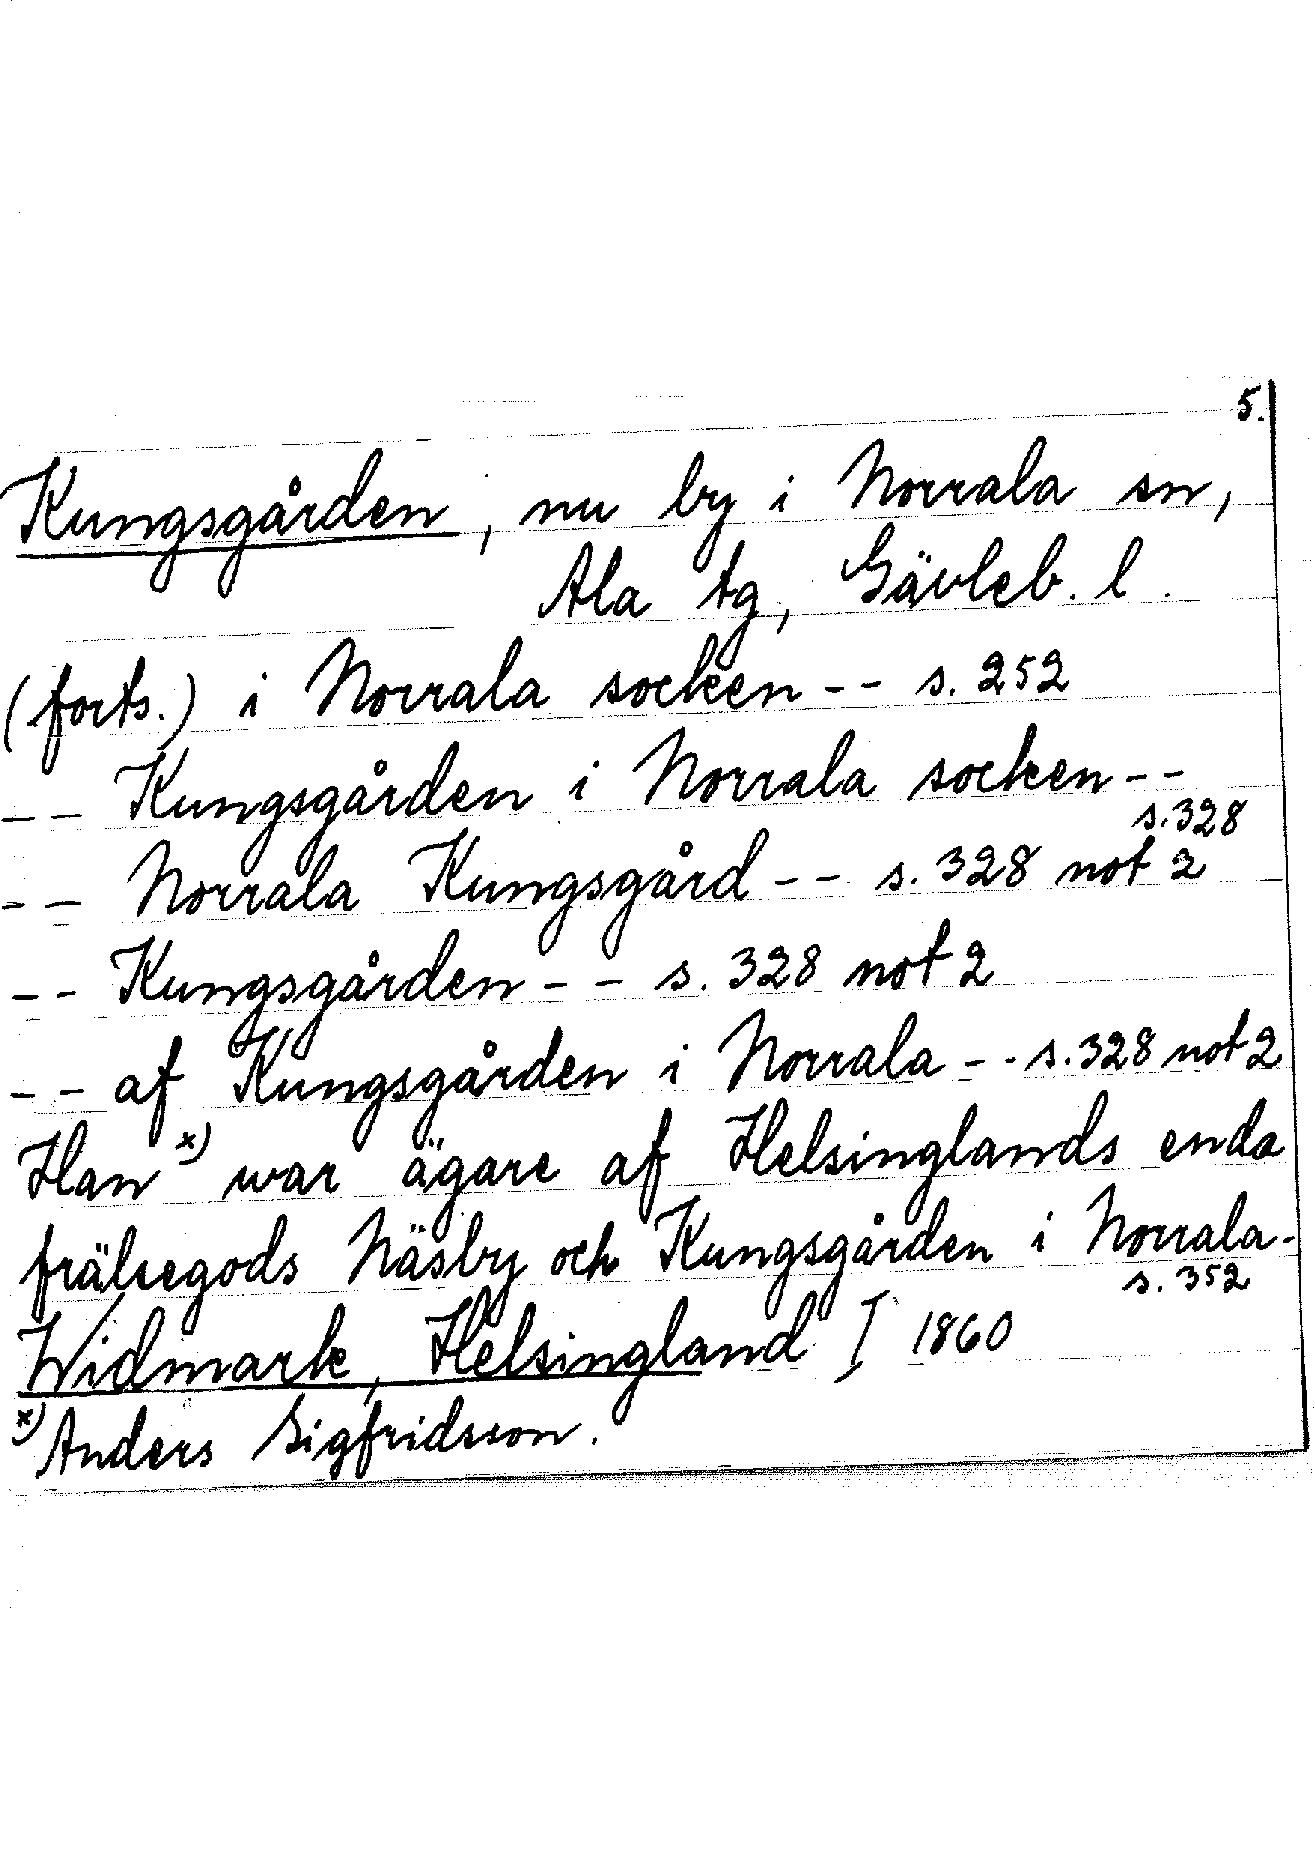 5.
Kungsgården, nu by i Norrala sn,
Ala tg, Gävleb. l.
(forts.) i Norrala socken -- s. 252
-- Kungsgården i Norrala socken --
s. 328
-- Norrala Kungsgård -- s. 328 not 2
-- Kungsgården -- s. 328 not 2
-- af Kungsgården i Norrala -- s. 328 not 2
Han x) war ägare af Helsinglands enda
frälsegods Näsby och Kungsgården i Norrala-
s. 352
Widmark, Helsingland I 1860
x) Anders Sigfridsson.